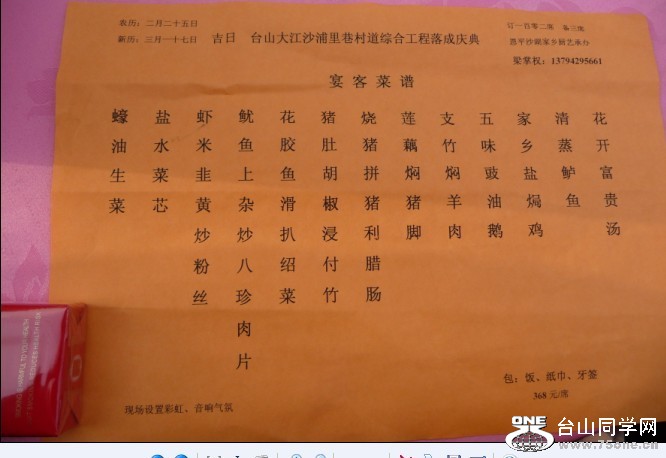 农历：二月二十五日
新历：三月一十七日
吉日 台山大江沙浦里巷村道综合工程落成庆典
订一百零二席 备三席
恩平沙湖家乡厨艺承办
梁掌权：13794295661
宴客菜谱
花开富贵汤
清蒸鲈鱼
家乡盐焗鸡
五味豉油鹅
支竹焖羊肉
莲藕焖猪脚
烧猪拼猪利腊肠
猪肚胡椒浸付竹
花胶鱼滑扒绍菜
鱿鱼上杂炒八珍肉片
虾米韭黄炒粉丝
盐水菜芯
蠔油生菜
包：饭、纸巾、牙签
368 元/席
现场设置彩虹、音响气氛
ONE
台山同学网
www.75one.cn